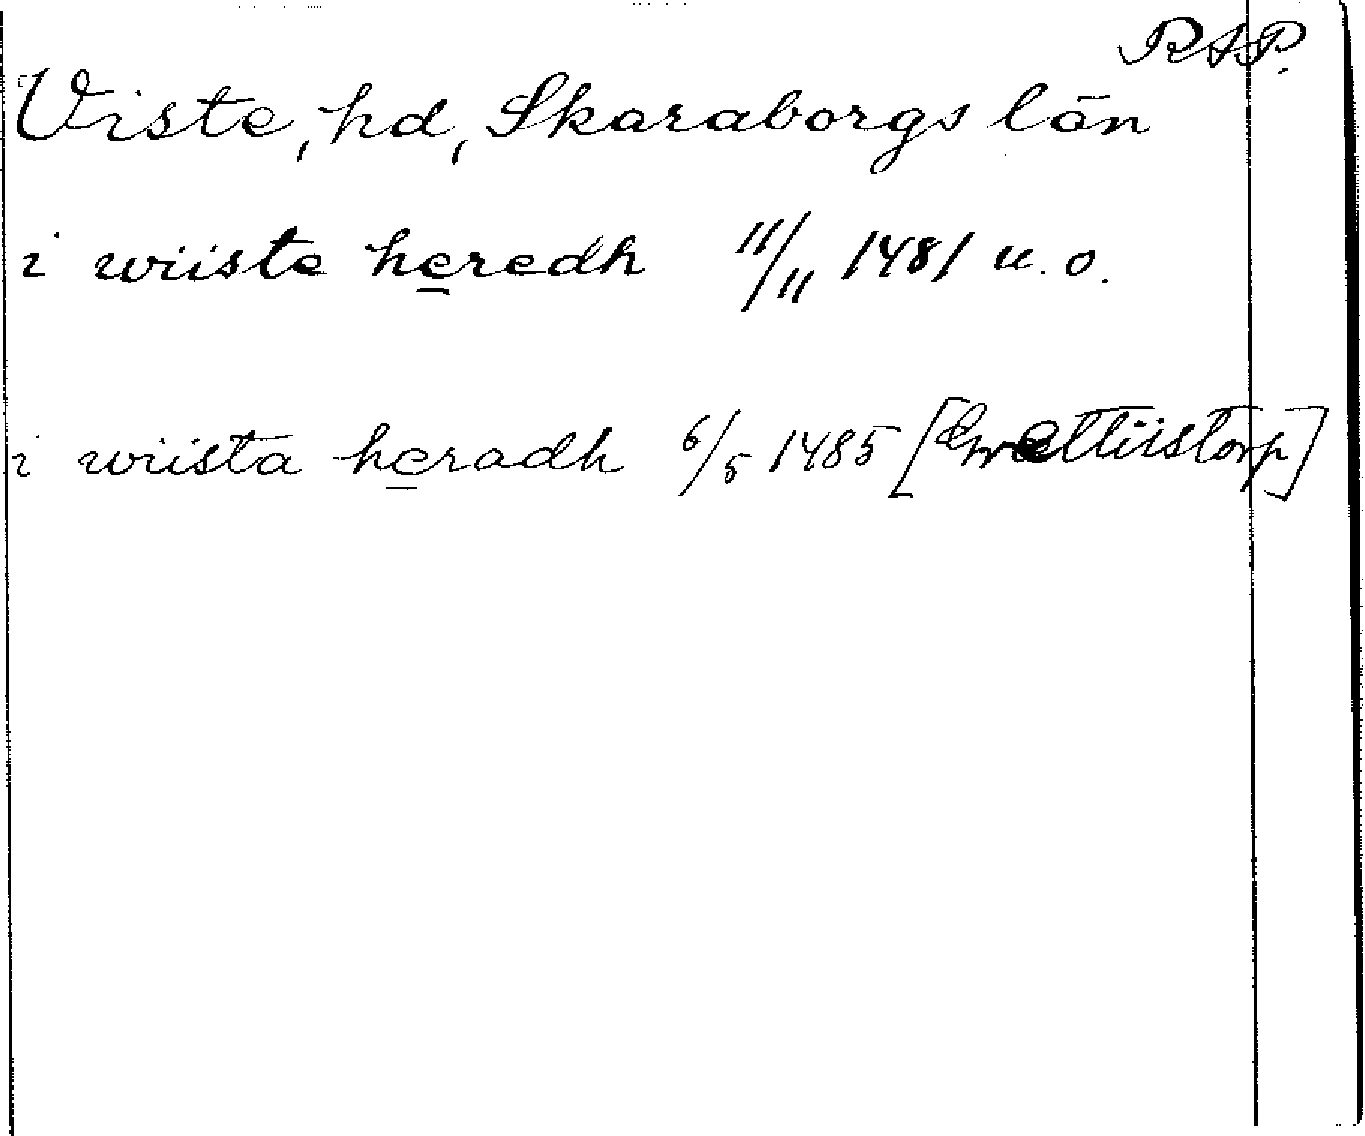 RAP.
Viste, hd, Skaraborgs län
i wiiste heredh 11/11 1481 u. o.
i wiista heradh 6/5 1485 [Grettiistorp]